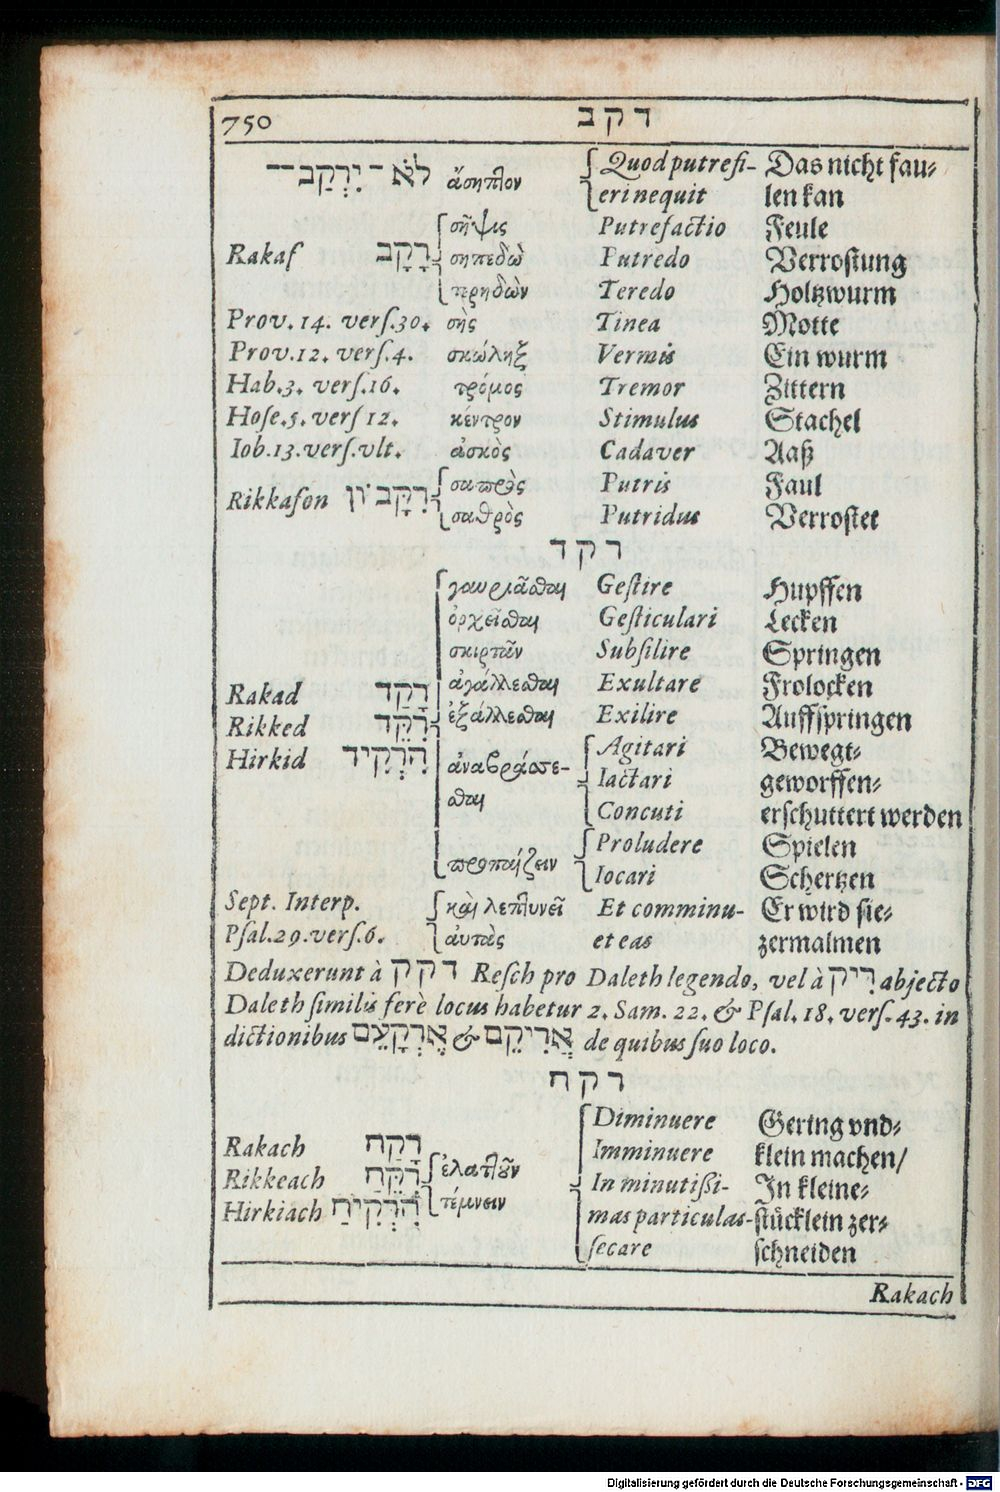 750 ר ק ב
לֹא־יִרְקַב־ ἄσηπτον Quod putrefi- Das nicht fau-
eri nequit len kan
σῆψις Putrefactio Feule
Rakaf רָקָב σηπεδὼ Putredo Verrostung
πρηδὼν Teredo Holtzwurm
Prov. 14. vers. 30. σὴς Tinea Motte
Prov. 12. vers. 4. σκώληξ Vermis Ein wurm
Hab. 3. vers. 16. τρόμος Tremor Zittern
Hose. 5. vers 12. κέντρον Stimulus Stachel
Iob. 13. vers. vlt. ἀσκὸς Cadaver Aaß
σαπρὸς Putris Faul
Rikkafon רִקָּבוֹן σαθρὸς Putridus Verrostet
ר ק ד
γαυριᾶσθαι Gestire Hupffen
ὀρχεῖσθαι Gesticulari Lecken
σκιρτᾶν Subsilire Springen
Rakad רָקַד ἀγάλλεσθαι Exultare Frolocken
Rikked רִקֵּד ἐξάλλεσθαι Exilire Auffspringen
Hirkid הִרְקִיד ἀναβράσσε- Agitari Bewegt-
σθαι Iactari geworffen-
Concuti erschuttert werden
προπαίζειν Proludere Spielen
Iocari Schertzen
Sept. Interp. καὶ λεπτυνεῖ Et comminu- Er wird sie-
Psal. 29. vers. 6. αὐτὰς et eas zermalmen
Deduxerunt à דקק Resch pro Daleth legendo, vel à רִיק abjecto
Daleth similis ferè locus habetur 2. Sam. 22. & Psal. 18. vers. 43. in
dictionibus אֲרִיקֵם & אֶרְקָעֵם de quibus suo loco.
ר ק ח
Diminuere Gering vnd-
Rakach רָקַח Imminuere klein machen/
Rikkeach רִקֵּחַ ἐλαττοῦν In minutißi- In kleine-
Hirkiach הִרְקִיחַ τέμνειν mas particulas- stücklein zer-
secare schneiden
Rakach
Digitalisierung gefördert durch die Deutsche Forschungsgemeinschaft - DFG